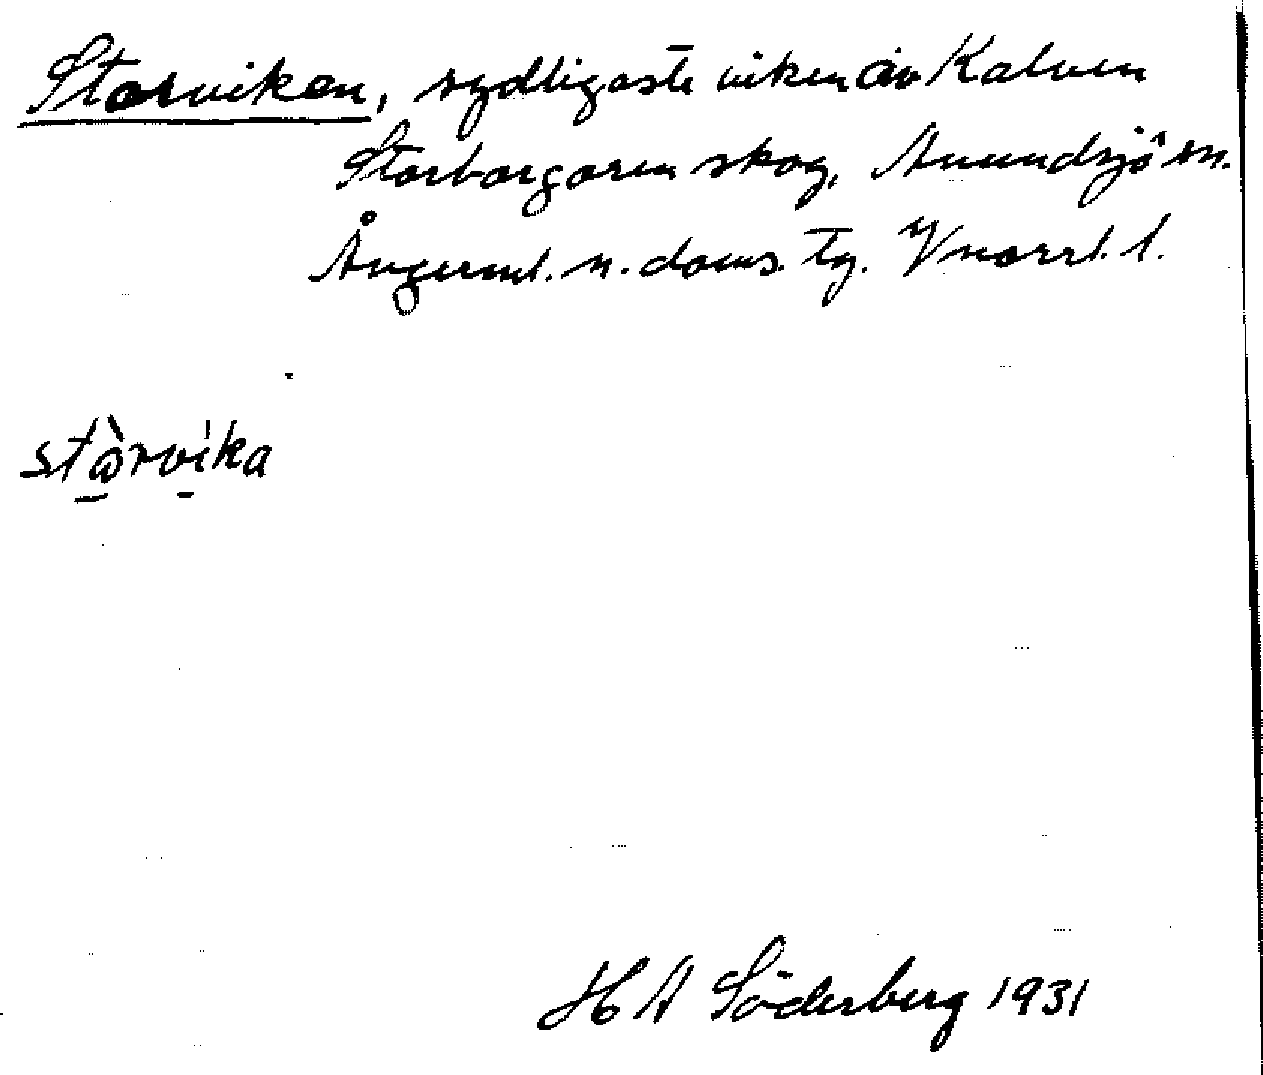 Storviken, sydligaste viken av Kalven
Storborgaren skog, Anundsjö sn.
Ångerml. n. doms. tg. Vnorrl. l.
stòrvika
H A Söderberg 1931